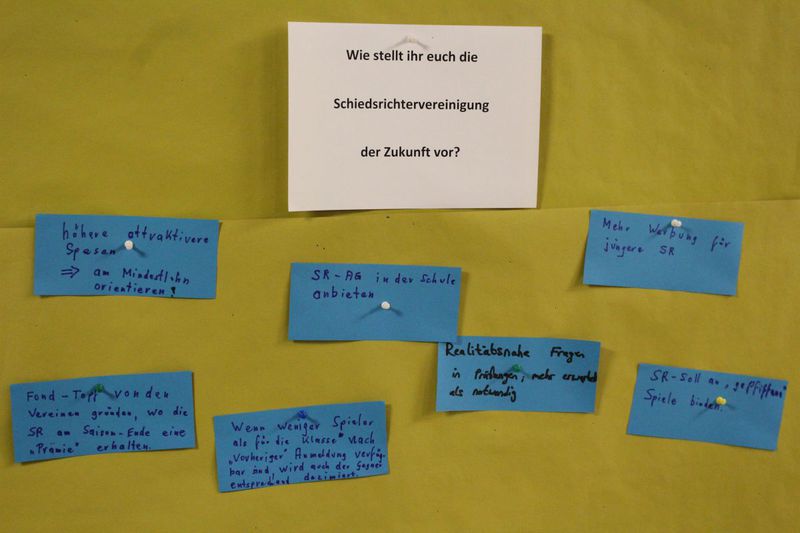 Wie stellt ihr euch die
Schiedsrichtervereinigung
der Zukunft vor?
höhere attraktivere
Spesen
⇒ am Mindestlohn
orientieren!
SR-AG in der Schule
anbieten
Mehr Werbung für
jüngere SR
Realitätsnahe Fragen
in Prüfungen, mehr erwartet
als notwendig
Fond-Topf von den
Vereinen gründen, wo die
SR am Saison-Ende eine
"Prämie" erhalten.
Wenn weniger Spieler
als für die Klasse" nach
"vorheriger" Anmeldung verfüg-
bar sind, wird auch der Gegner
entsprechend dezimiert.
SR-Soll an "gepfiffene"
Spiele binden.